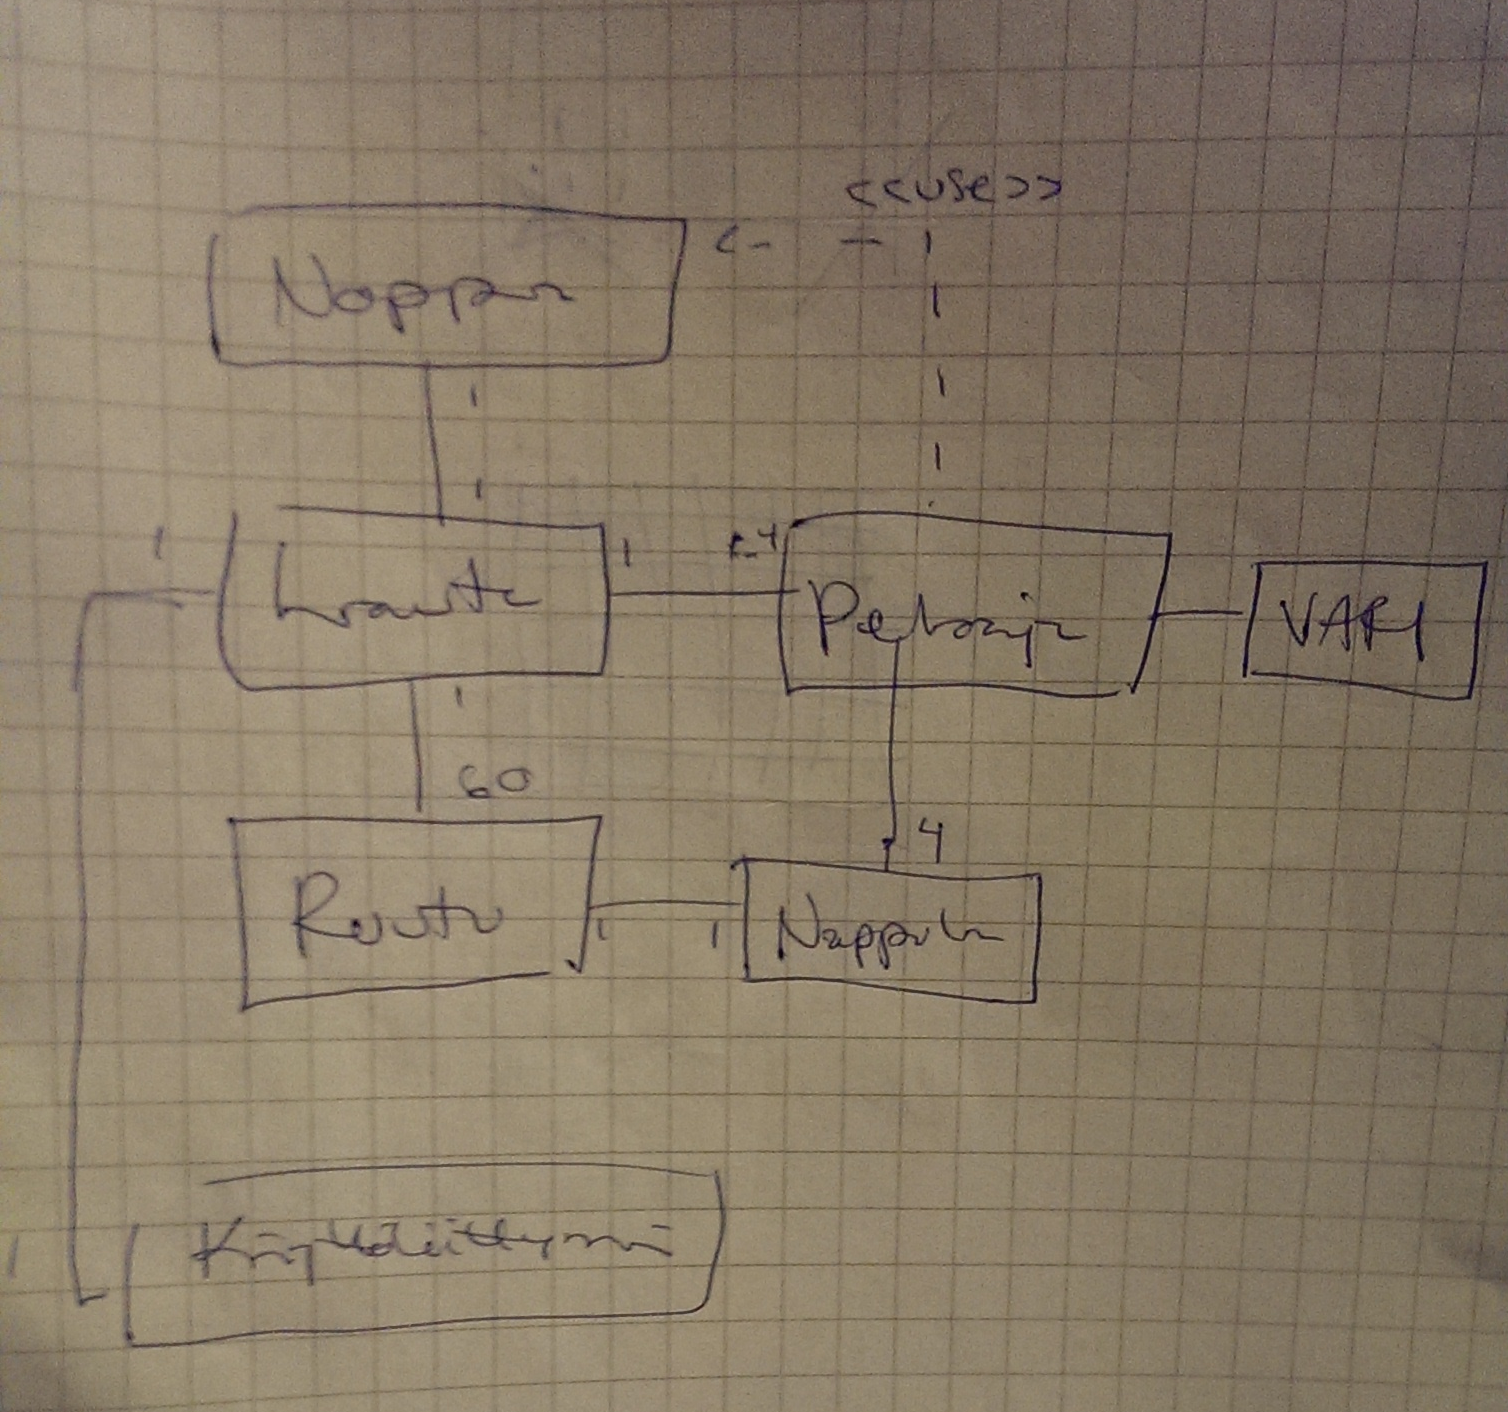 <<use>>
Noppa
1
1
1
1
2-4
Lauta
Pelaaja
VÄRI
1
60
4
Ruutu
1
1
Nappula
Käyttöliittymä
1